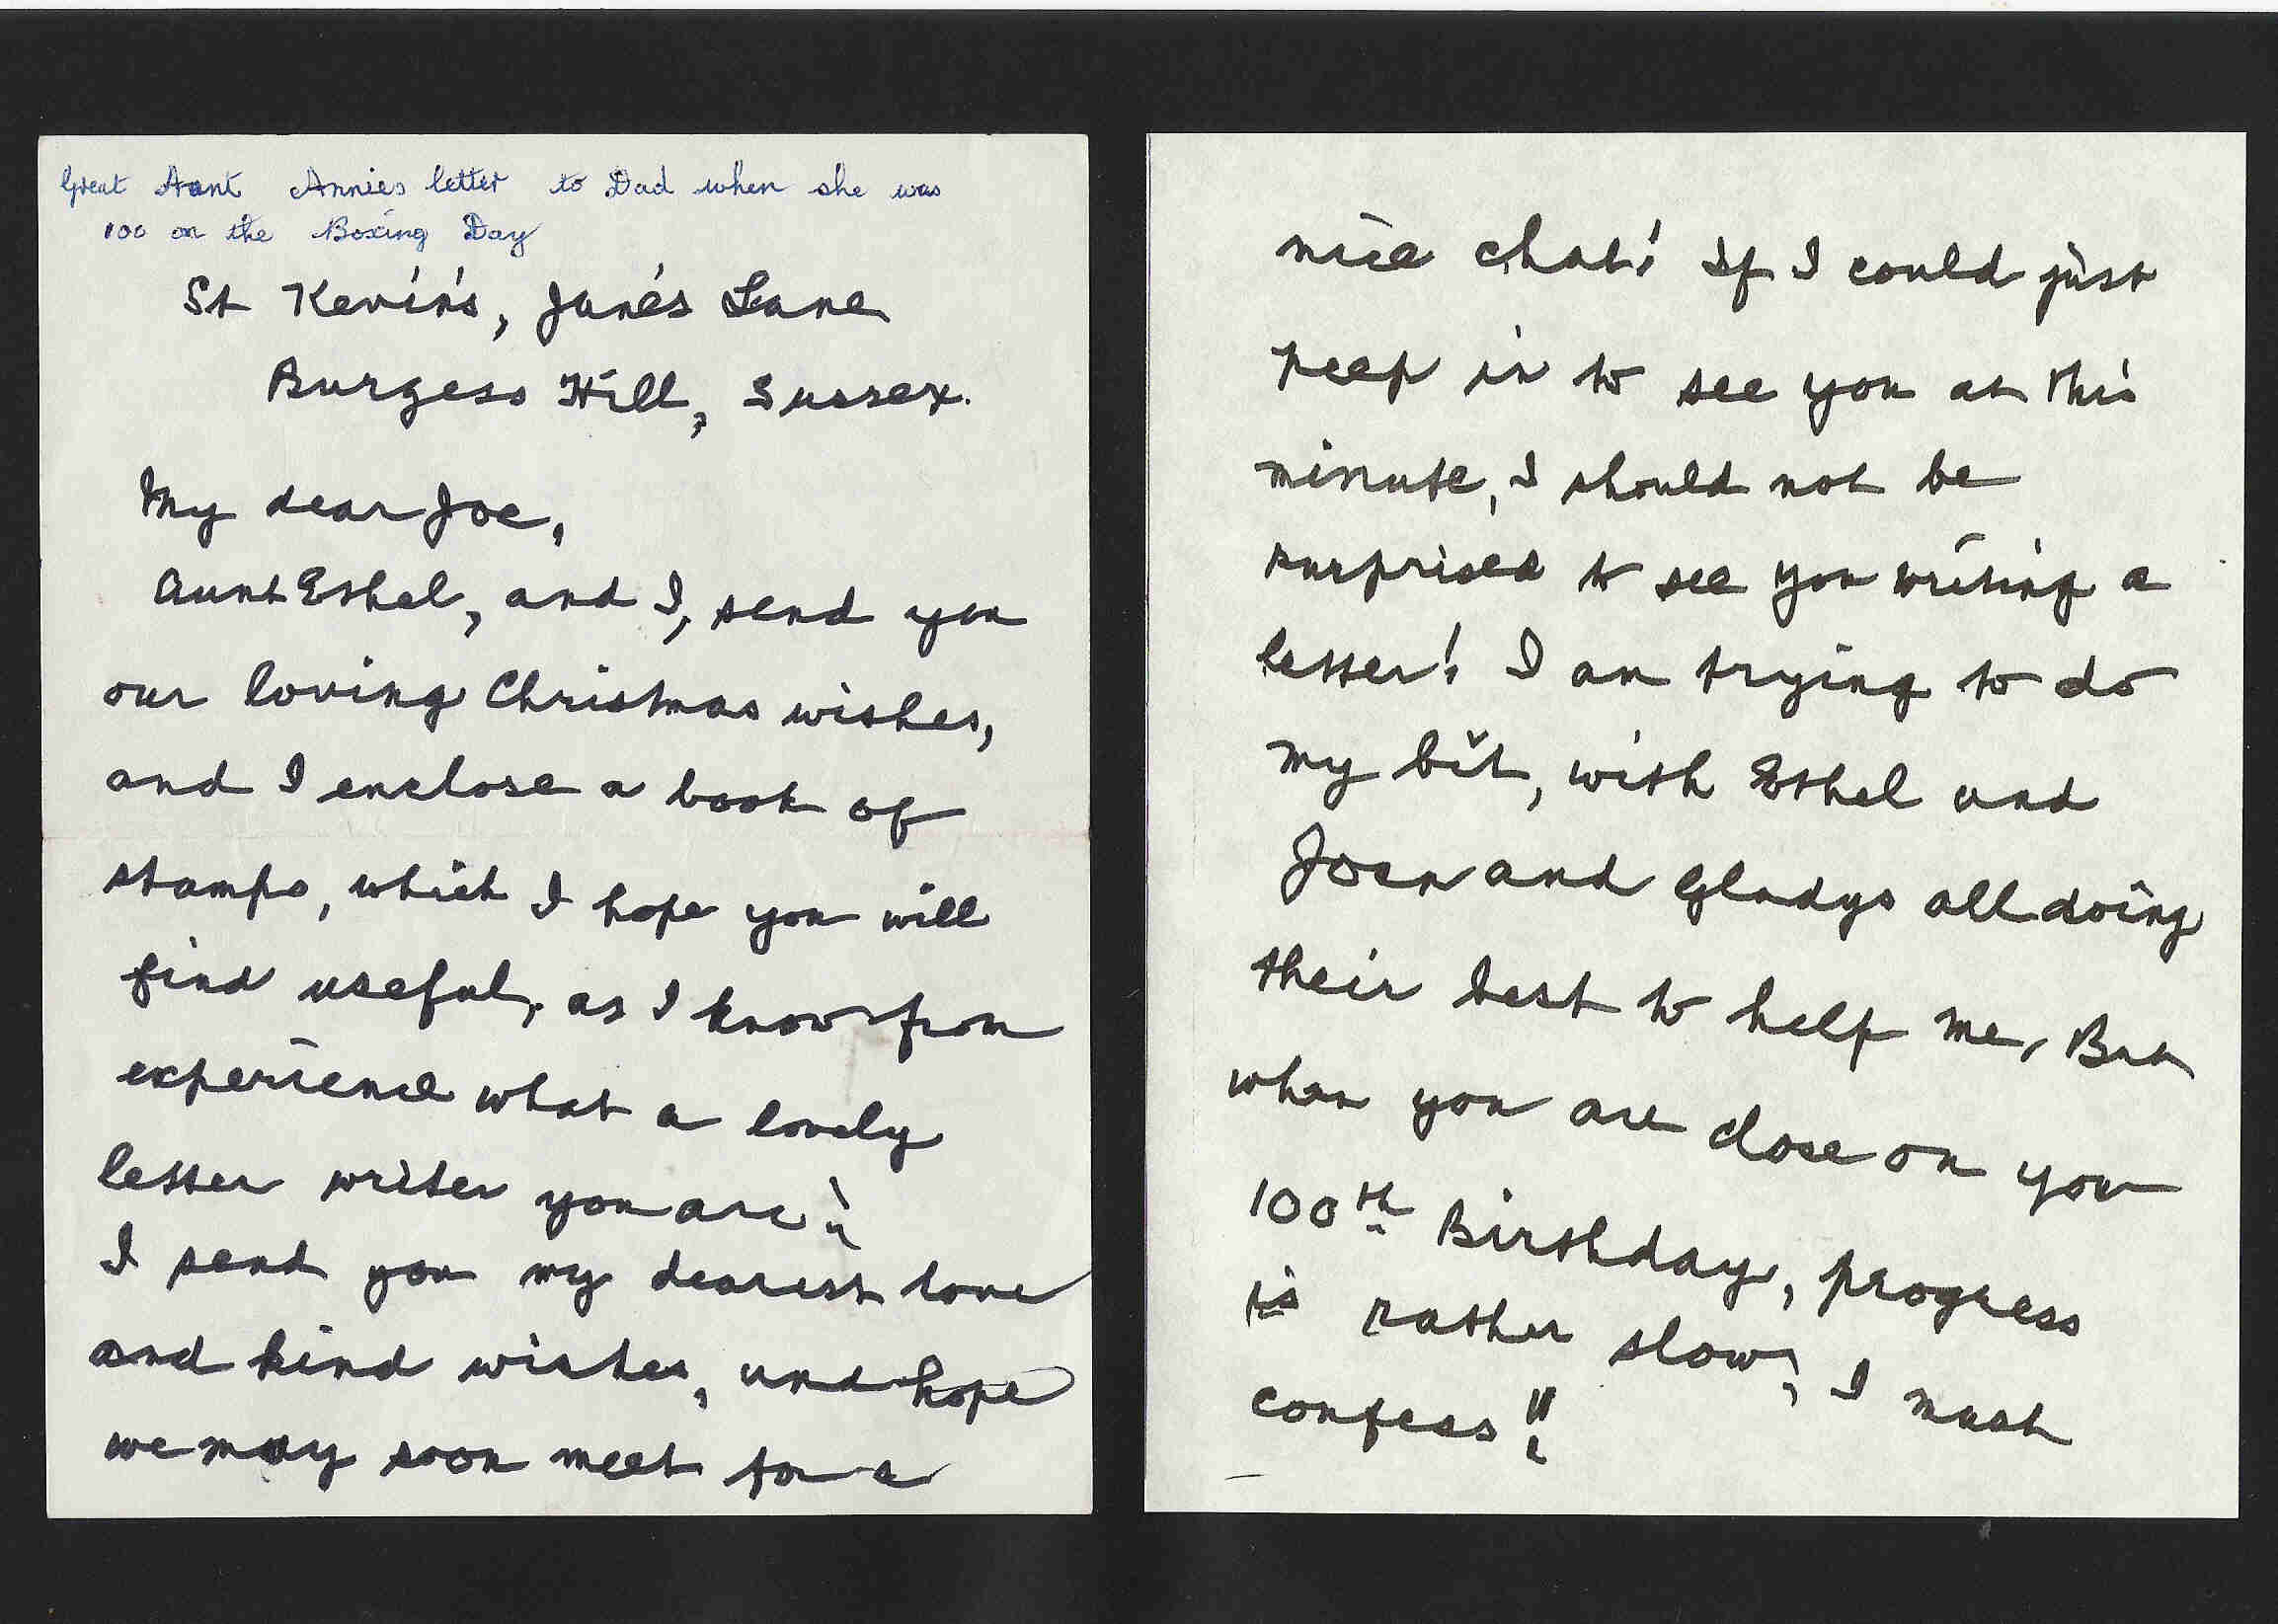 Great Aunt Annies letter to Dad when she was
100 on the Boxing Day
St Kevin's, Jane's Lane
Burgess Hill, Sussex.
My dear Joe,
Aunt Ethel, and I, send you
our loving Christmas wishes,
and I enclose a book of
stamps, which I hope you will
find useful, as I know from
experience what a lovely
letter writer you are!
I send you my dearest love
and kind wishes, and hope
we may soon meet for a
nice chat! If I could just
peep in to see you at this
minute, I should not be
surprised to see you writing a
letter! I am trying to do
my bit, with Ethel and
Joan and Gladys all doing
their best to help me, But
when you are close on your
100th Birthday, progress
is rather slow, I must
confess!!